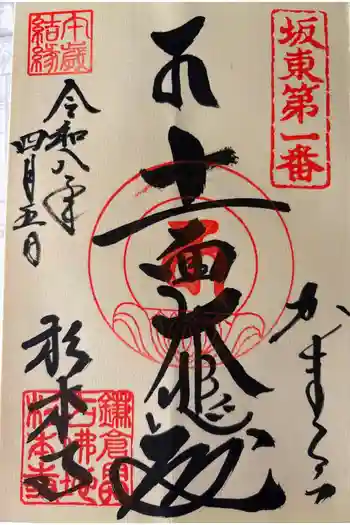 坂東第一番
かまくら
十一面大悲殿
午歳
結縁
令和八年
四月五日
杉本寺
鎌倉最
古佛地
杉本寺